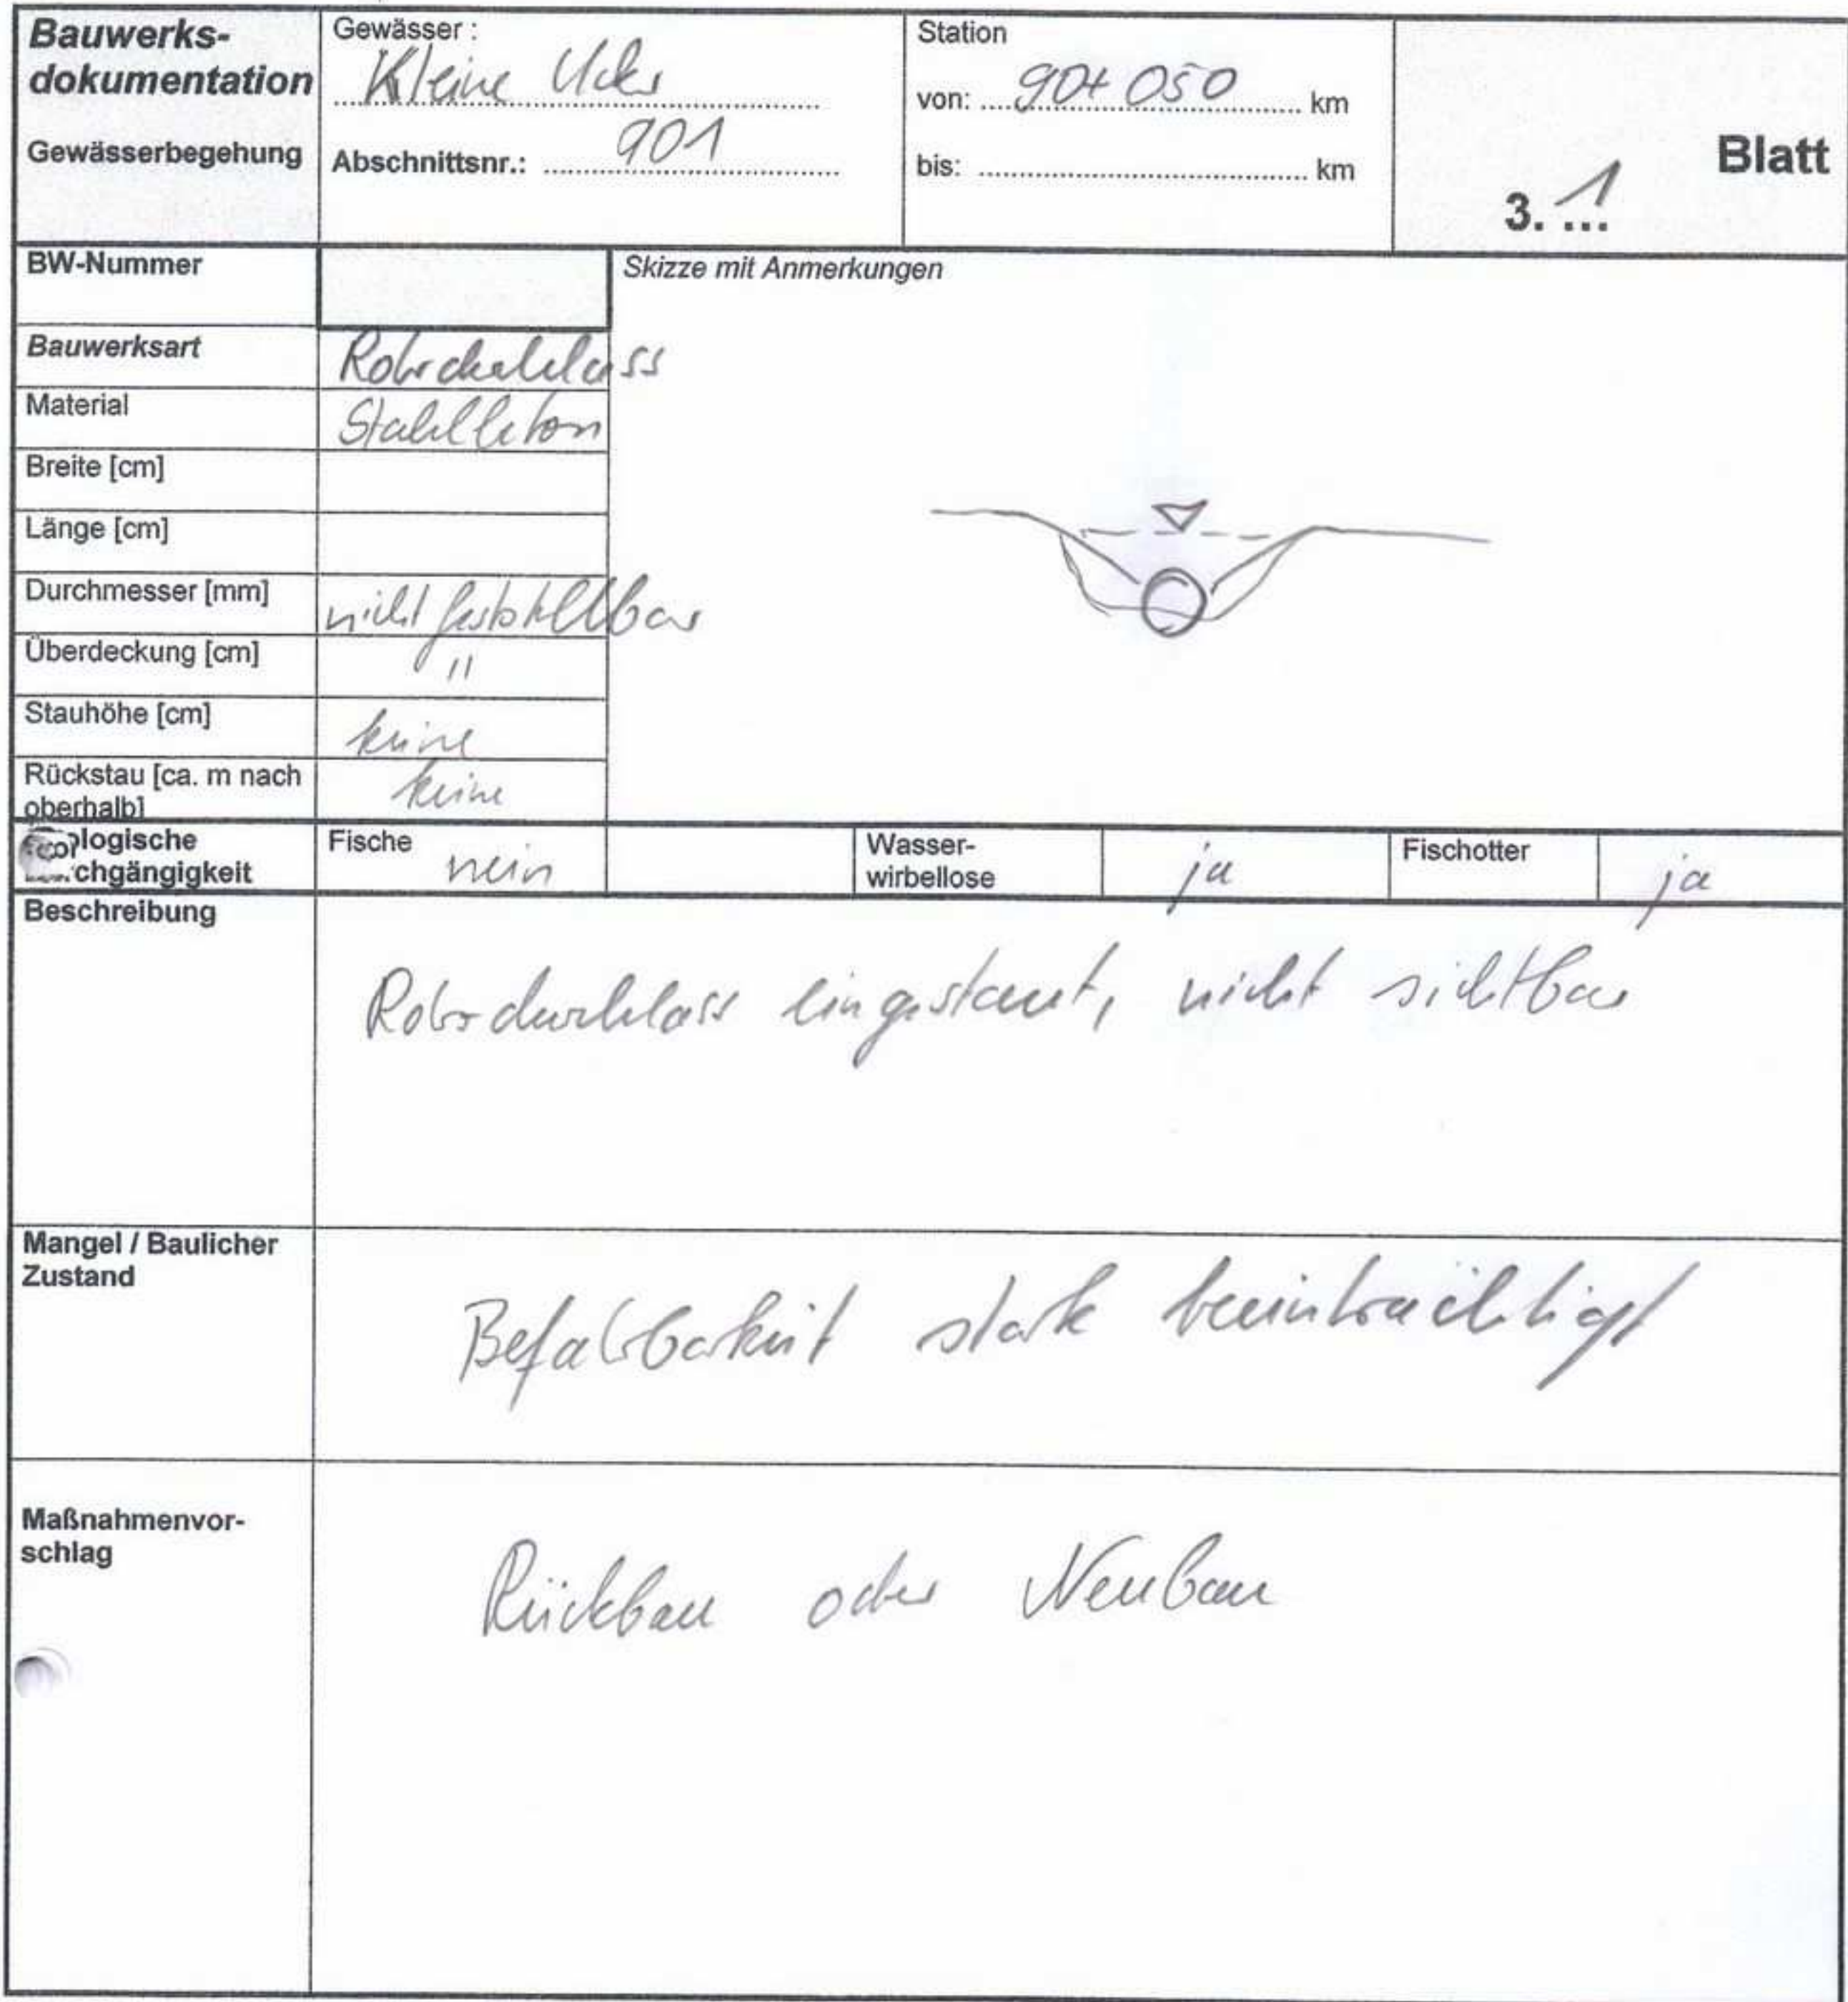 Bauwerks-
dokumentation
Gewässerbegehung
Gewässer :
Kleine Ucker
Abschnittsnr.: 901
Station
von: 90+050 km
bis: km
Blatt
3. 1
BW-Nummer
Skizze mit Anmerkungen
Bauwerksart Rohrdurchlass
Material Stahlbeton
Breite [cm]
Länge [cm]
Durchmesser [mm] nicht feststellbar
Überdeckung [cm] "
Stauhöhe [cm] keine
Rückstau [ca. m nach
oberhalb] keine
ologische
chgängigkeit
Fische nein
Wasser-
wirbellose ja
Fischotter ja
Beschreibung
Rohrdurchlass eingestaut, nicht sichtbar
Mangel / Baulicher
Zustand
Befahrbarkeit stark beeinträchtigt
Maßnahmenvor-
schlag
Rückbau oder Neubau